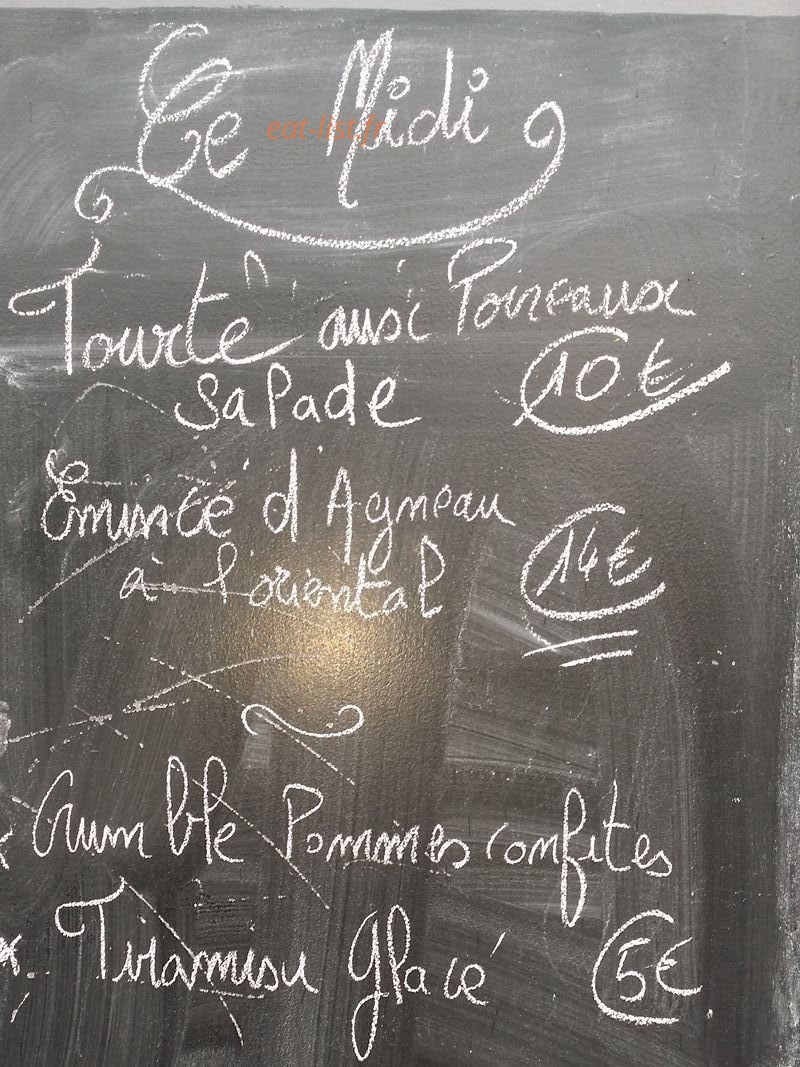 Ce Midi
eat-list.fr
Tourte aux Poireaux
salade 10 €
Émincé d'Agneau
à l'oriental 14 €
x Crumble Pommes confites
x Tiramisu glacé 5 €